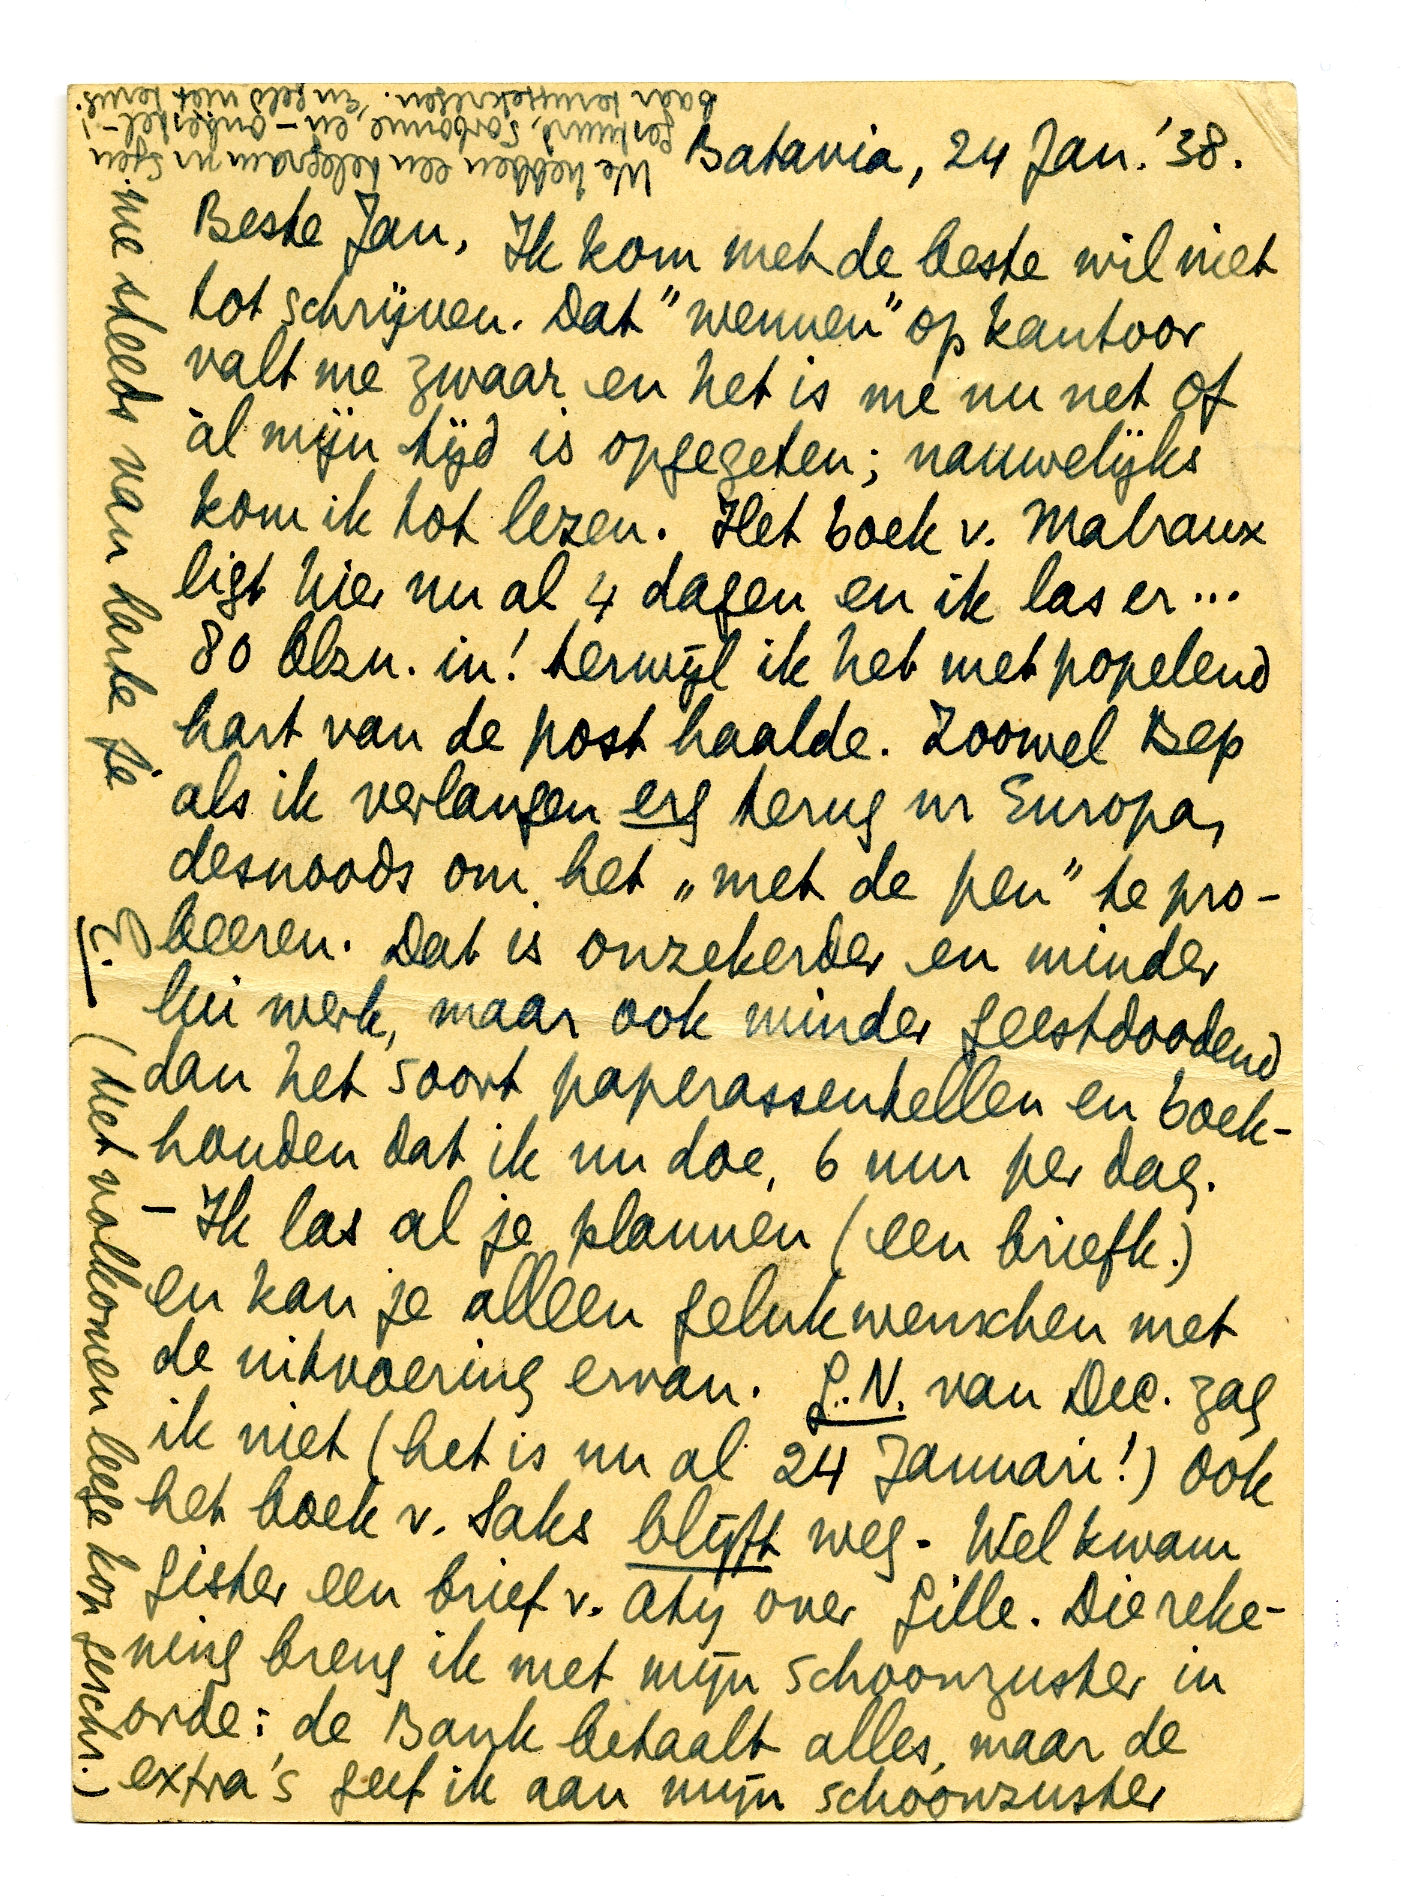 Batavia, 24 Jan. '38.
Beste Jan, Ik kom met de beste wil niet
tot schrijven. Dat "wennen" op kantoor
valt me zwaar en het is me nu net of
àl mijn tijd is opgegeten; nauwelijks
kom ik tot lezen. Het boek v. Malraux
ligt hier nu al 4 dagen en ik las er...
80 blzn. in! terwijl ik het met popelend
hart van de post haalde. Zoowel Bep
als ik verlangen erg terug nr Europa,
desnoods om het „met de pen" te pro-
beeren. Dat is onzekerder en minder
lui werk, maar ook minder geestdoodend
dan het soort paperassentellen en boek-
houden dat ik nu doe, 6 uur per dag.
- Ik las al je plannen (een briefk.)
en kan je alleen gelukwenschen met
de uitvoering ervan. G.N. van Dec. zag
ik niet (het is nu al 24 Januari!) ook
het boek v. Saks blijft weg. Wel kwam
gister een brief v. Aty over Gille. Die reke-
ning breng ik met mijn schoonzuster in
orde: de Bank betaalt alles, maar de
extra's geef ik aan mijn schoonzuster
We hebben een telegram nr Sjen
gestuurd, Sorbonne, en - onbestel-
baar teruggekregen. En geld niet terug.
me steeds van harte je
E.
(Met volkomen leege kop geschr.)